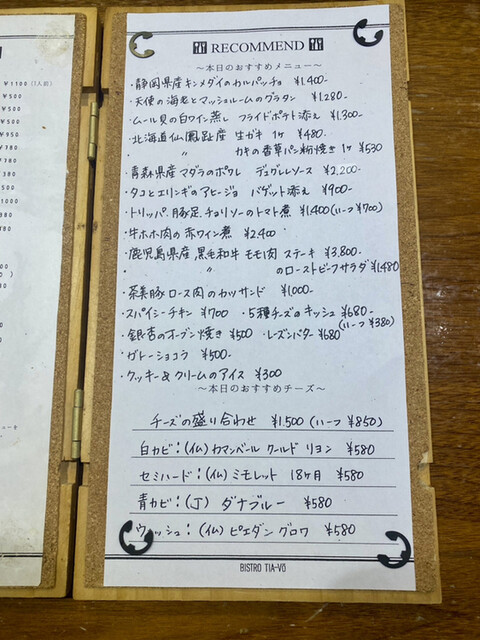 RECOMMEND
～本日のおすすめメニュー～
・静岡県産キンメダイのカルパッチョ ¥1,400-
・天使の海老とマッシュルームのグラタン ¥1,280-
・ムール貝の白ワイン蒸し フライドポテト添え ¥1,300-
・北海道仙鳳趾産 生ガキ 1ケ ¥480-
〃 カキの香草パン粉焼き 1ケ ¥530
・青森県産マダラのポワレ デュグレレソース ¥2,200-
・タコとエリンギのアヒージョ バゲット添え ¥900-
・トリッパ、豚足、チョリソーのトマト煮 ¥1,400(ハーフ ¥700)
・牛ホホ肉の赤ワイン煮 ¥2,400
・鹿児島県産 黒毛和牛 モモ肉 ステーキ ¥3,800-
〃 のローストビーフサラダ ¥1,480
・茶美豚ロース肉のカツサンド ¥1,000-
・スパイシーチキン ¥700 ・5種チーズのキッシュ ¥680-
(ハーフ ¥380)
・銀杏のオーブン焼き ¥500 ・レーズンバター ¥680
・ガトーショコラ ¥500-
・クッキー&クリームのアイス ¥300
～本日のおすすめチーズ～
チーズの盛り合わせ ¥1,500 (ハーフ ¥850)
白カビ:(仏)カマンベール クールド リヨン ¥580
セミハード:(仏)ミモレット 18ヶ月 ¥580
青カビ:(丁) ダナブルー ¥580
ウォッシュ:(仏)ピエダングロワ ¥580
BISTRO TIA-VÖ
¥1100(1人前)
¥500
¥500
¥500
¥950
¥780
¥380
¥780
¥380